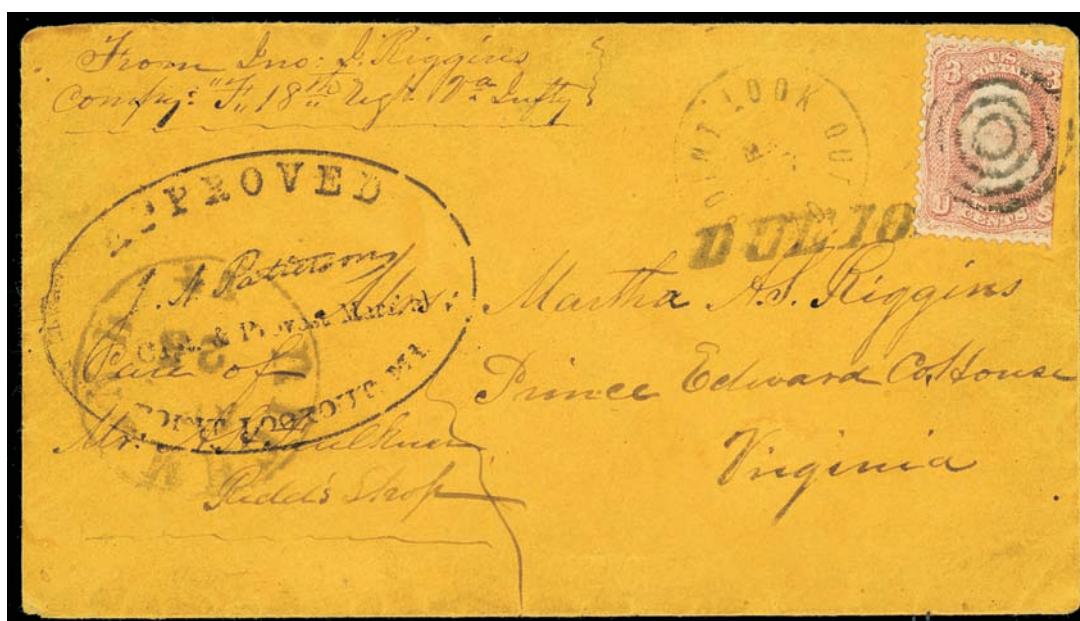 From Jno: J. Riggins
Compy: "F" 18th Regt. Va Infty
POINT LOOK OUT
3 U.S. POSTAGE 3
U CENTS S
DUE 10
APPROVED
J. N. Patterson
Capt. & Provost Marshal.
POINT LOOKOUT. Md.
Mrs: Martha A.S. Riggins
Prince Edward Co. House
Virginia
Care of
Mr. A. S. Faulkner
Redd's Shop
RICHMOND
VA.